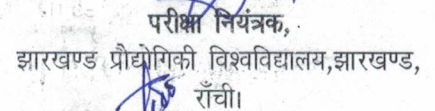 परीक्षा नियंत्रक,
झारखण्ड प्रौद्योगिकी विश्वविद्यालय,झारखण्ड,
राँची।